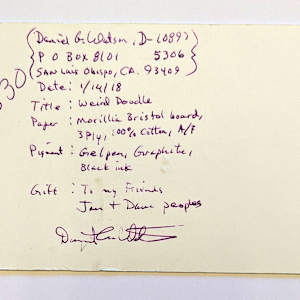 (Daniel G. Watson, D-10897
P O BOX 8101 5306
San Luis Obispo, CA. 93409)
30
Date: 1/14/18
Title: Weird Doodle
Paper: Morilla Bristol board,
3 Ply, 100% Cotton, A/F
Pigment: Gelpen, Graphite,
Black ink
Gift: To my Friends
Jan + Dave peoples